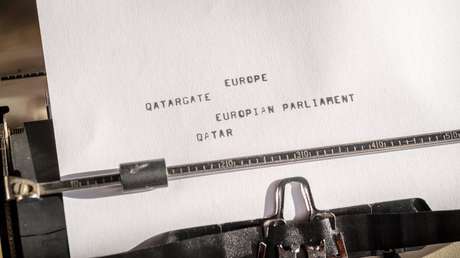 EUROPE
QATARGATE
EUROPIAN PARLIAMENT
QATAR
10 20 30 40